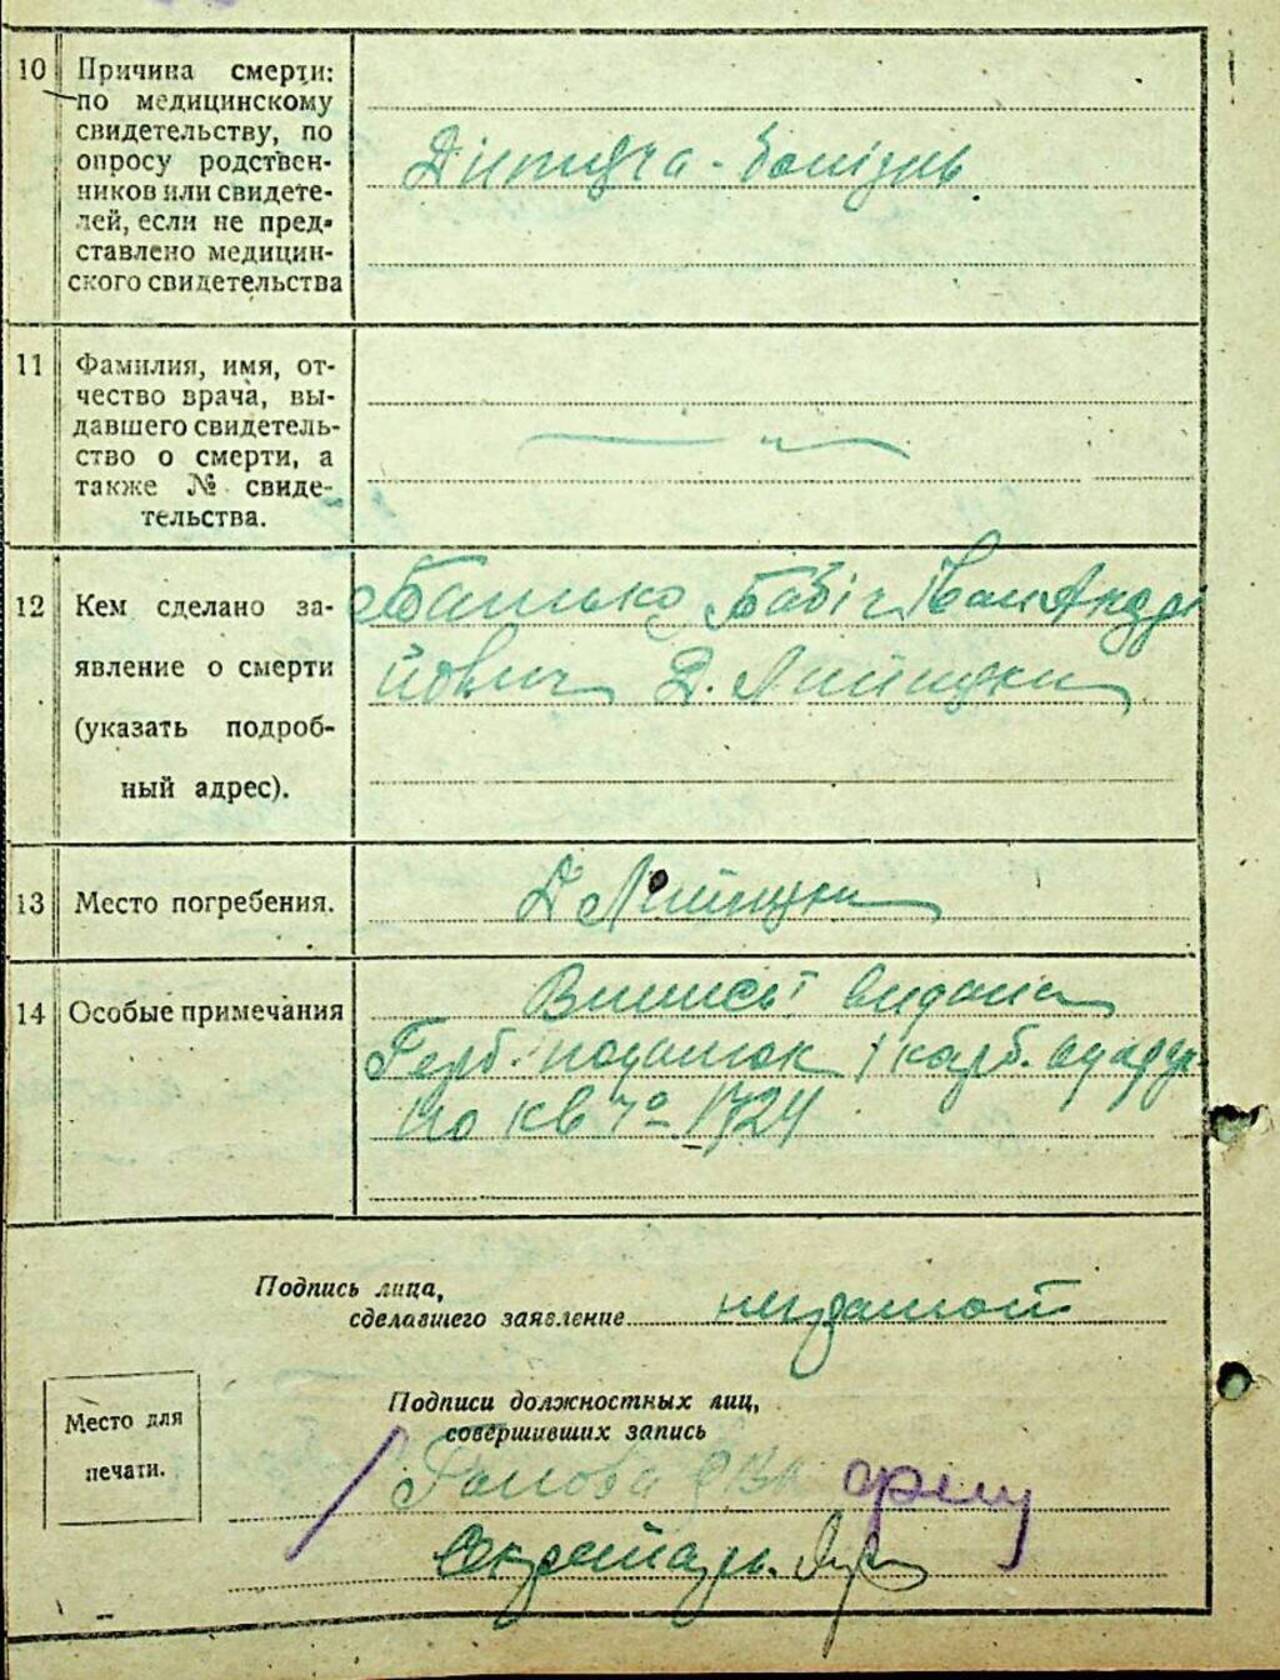 10 Причина смерти:
по медицинскому
свидетельству, по
опросу родствен-
ников или свидете-
лей, если не пред-
ставлено медицин-
ского свидетельства
Дитяча - болізнь.
11 Фамилия, имя, от-
чество врача, вы-
давшего свидетель-
ство о смерти, а
также № свиде-
тельства.
12 Кем сделано за-
явление о смерти
(указать подроб-
ный адрес).
Батько Бабіч Іван Андрі
йович Д.
13 Место погребения.
Д
14 Особые примечания
Виписі видана
Герб. податок 1 карб.
по кв № 1724
Подпись лица,
сделавшего заявление
Подписи должностных лиц,
совершивших запись
Место для
печати.
Голова
Секретарь.